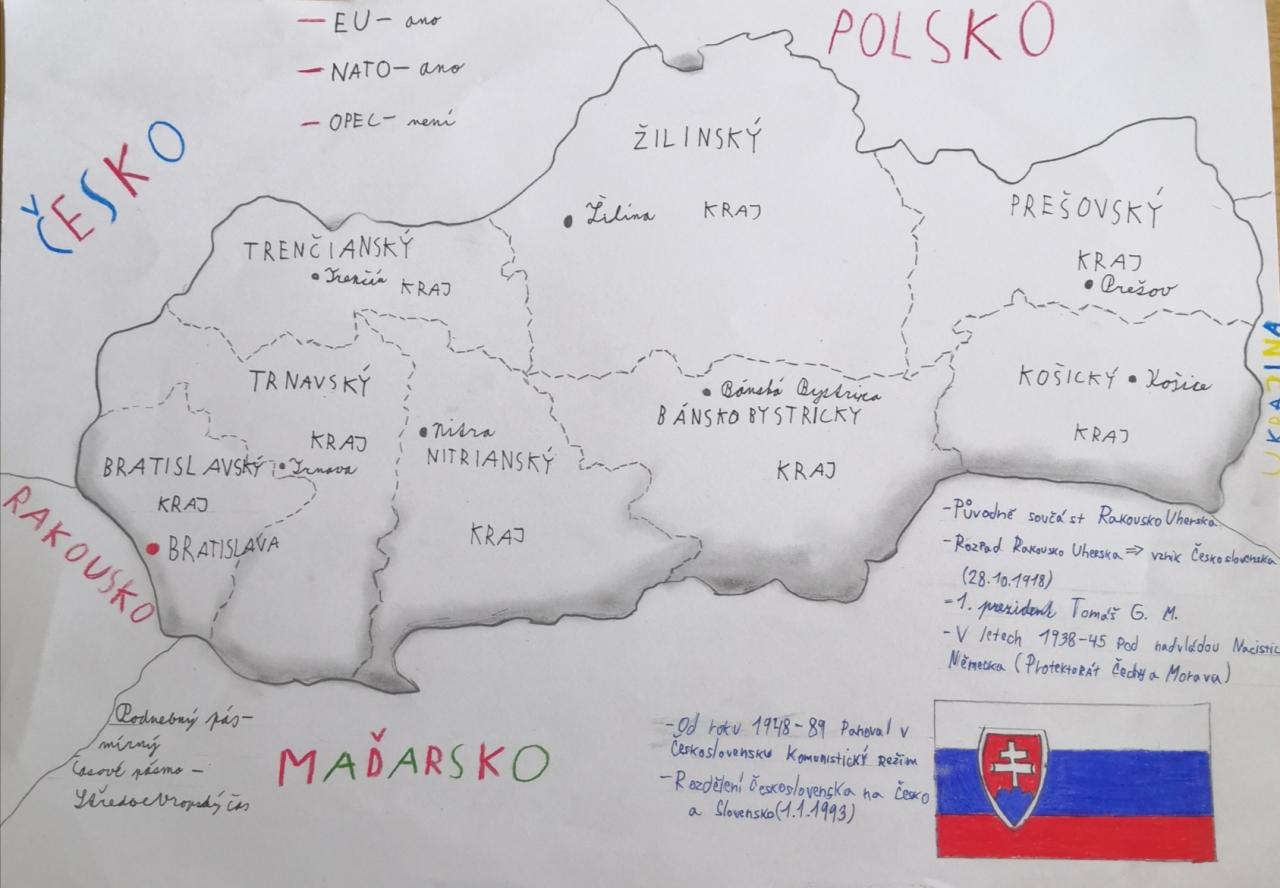 — EU – ano
— NATO – ano
— OPEC – není
POLSKO
ČESKO
ŽILINSKÝ
Žilina KRAJ
PREŠOVSKÝ
KRAJ
Prešov
TRENČIANSKÝ
Trenčín KRAJ
UKRAJINA
TRNAVSKÝ
KRAJ
Trnava
KOŠICKÝ Košice
KRAJ
Bánská Bystrica
BÁNSKOBYSTRICKÝ
KRAJ
Nitra
NITRIANSKÝ
KRAJ
BRATISLAVSKÝ
KRAJ
BRATISLAVA
RAKOUSKO
- Původně součást Rakousko Uherska
- Rozpad Rakousko Uherska ⇒ vznik Československa
(28.10.1918)
- 1. prezident Tomáš G. M.
- V letech 1938-45 pod nadvládou Nacistic
Německa (Protektorát Čechy a Morava)
Podnebný pás –
mírný
časové pásmo –
Středoevropský čas
MAĎARSKO
- Od roku 1948-89 Panoval v
Československu Komunistický režim
- Rozdělení Československa na Česko
a Slovensko (1.1.1993)